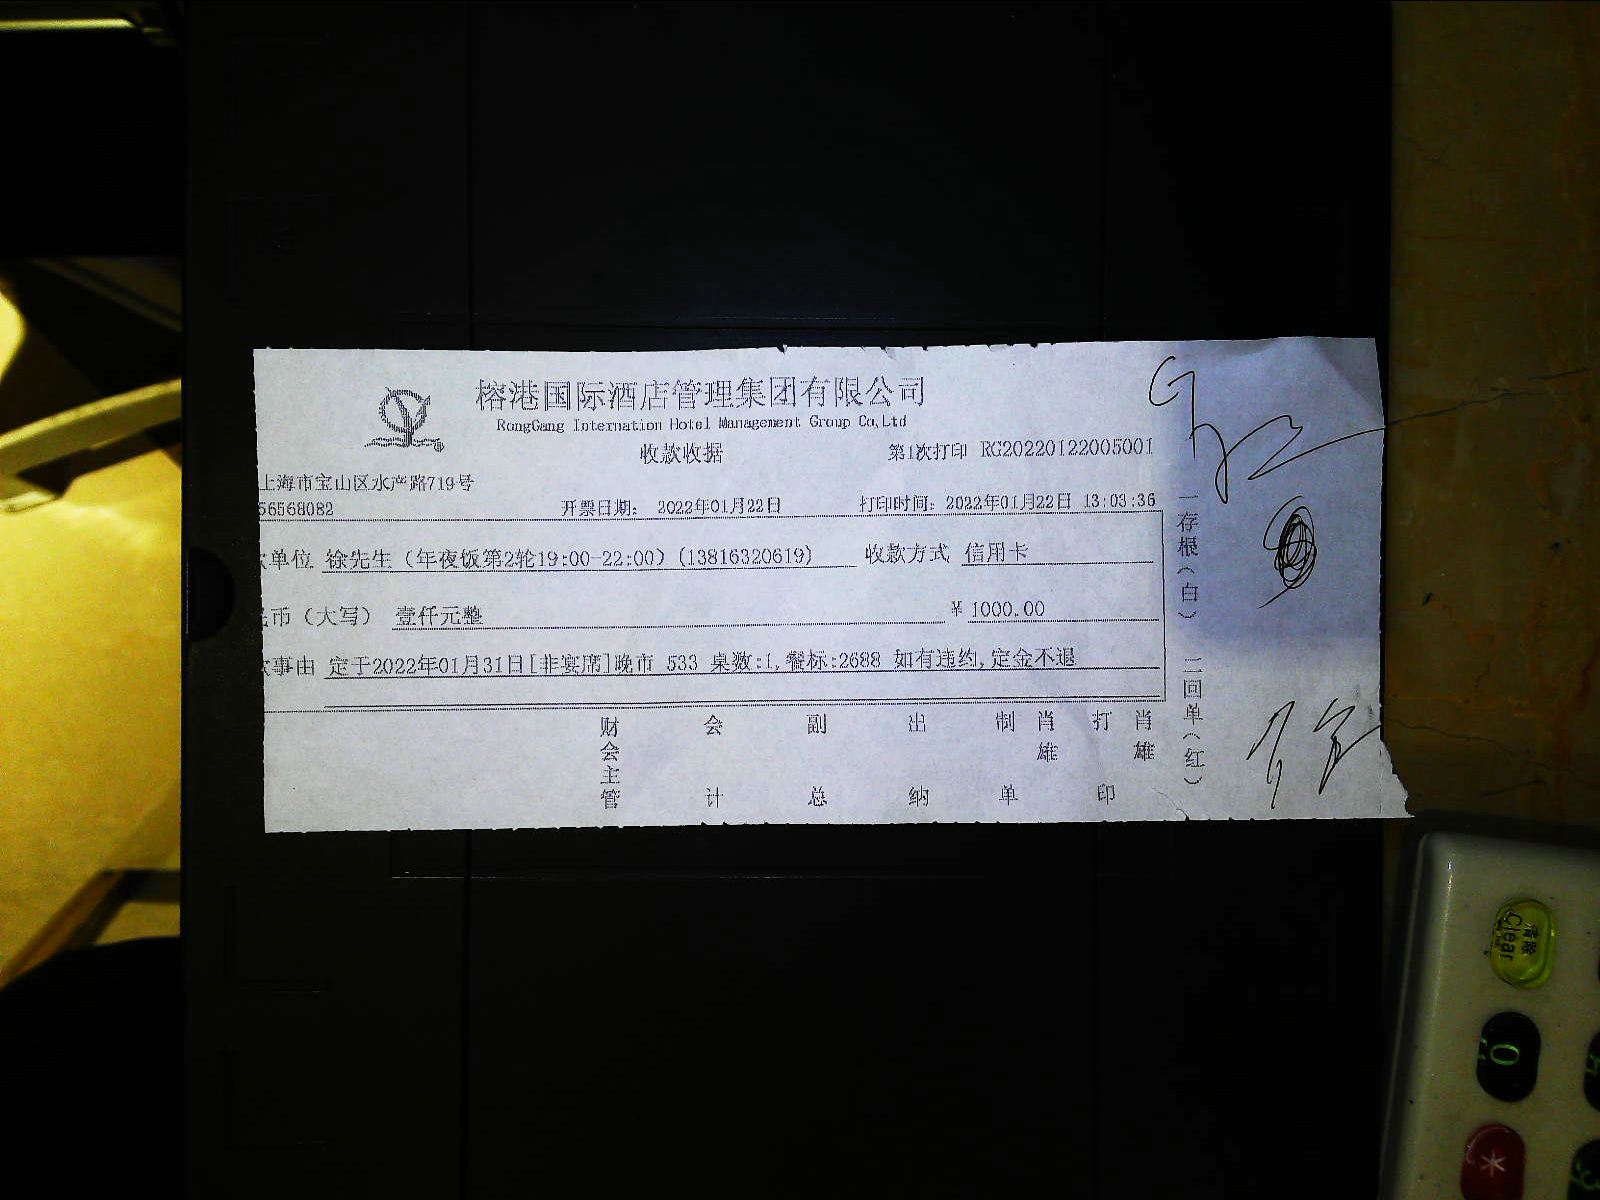 榕港国际酒店管理集团有限公司
RongGang Internation Hotel Management Group Co,Ltd
收款收据
第1次打印 RG20220122005001
上海市宝山区水产路719号
56568082
开票日期: 2022年01月22日
打印时间: 2022年01月22日 13:03:36
单位 徐先生(年夜饭第2轮19:00-22:00)(13816320619) 收款方式 信用卡
币(大写) 壹仟元整 ¥ 1000.00
事由 定于2022年01月31日[非宴席]晚市 533 桌数:1,餐标:2688 如有违约,定金不退
财会主管
会计
副总
出纳
制单
肖雄
打印
肖雄
一存根(白)
二回单(红)
清除
Clear
0
*